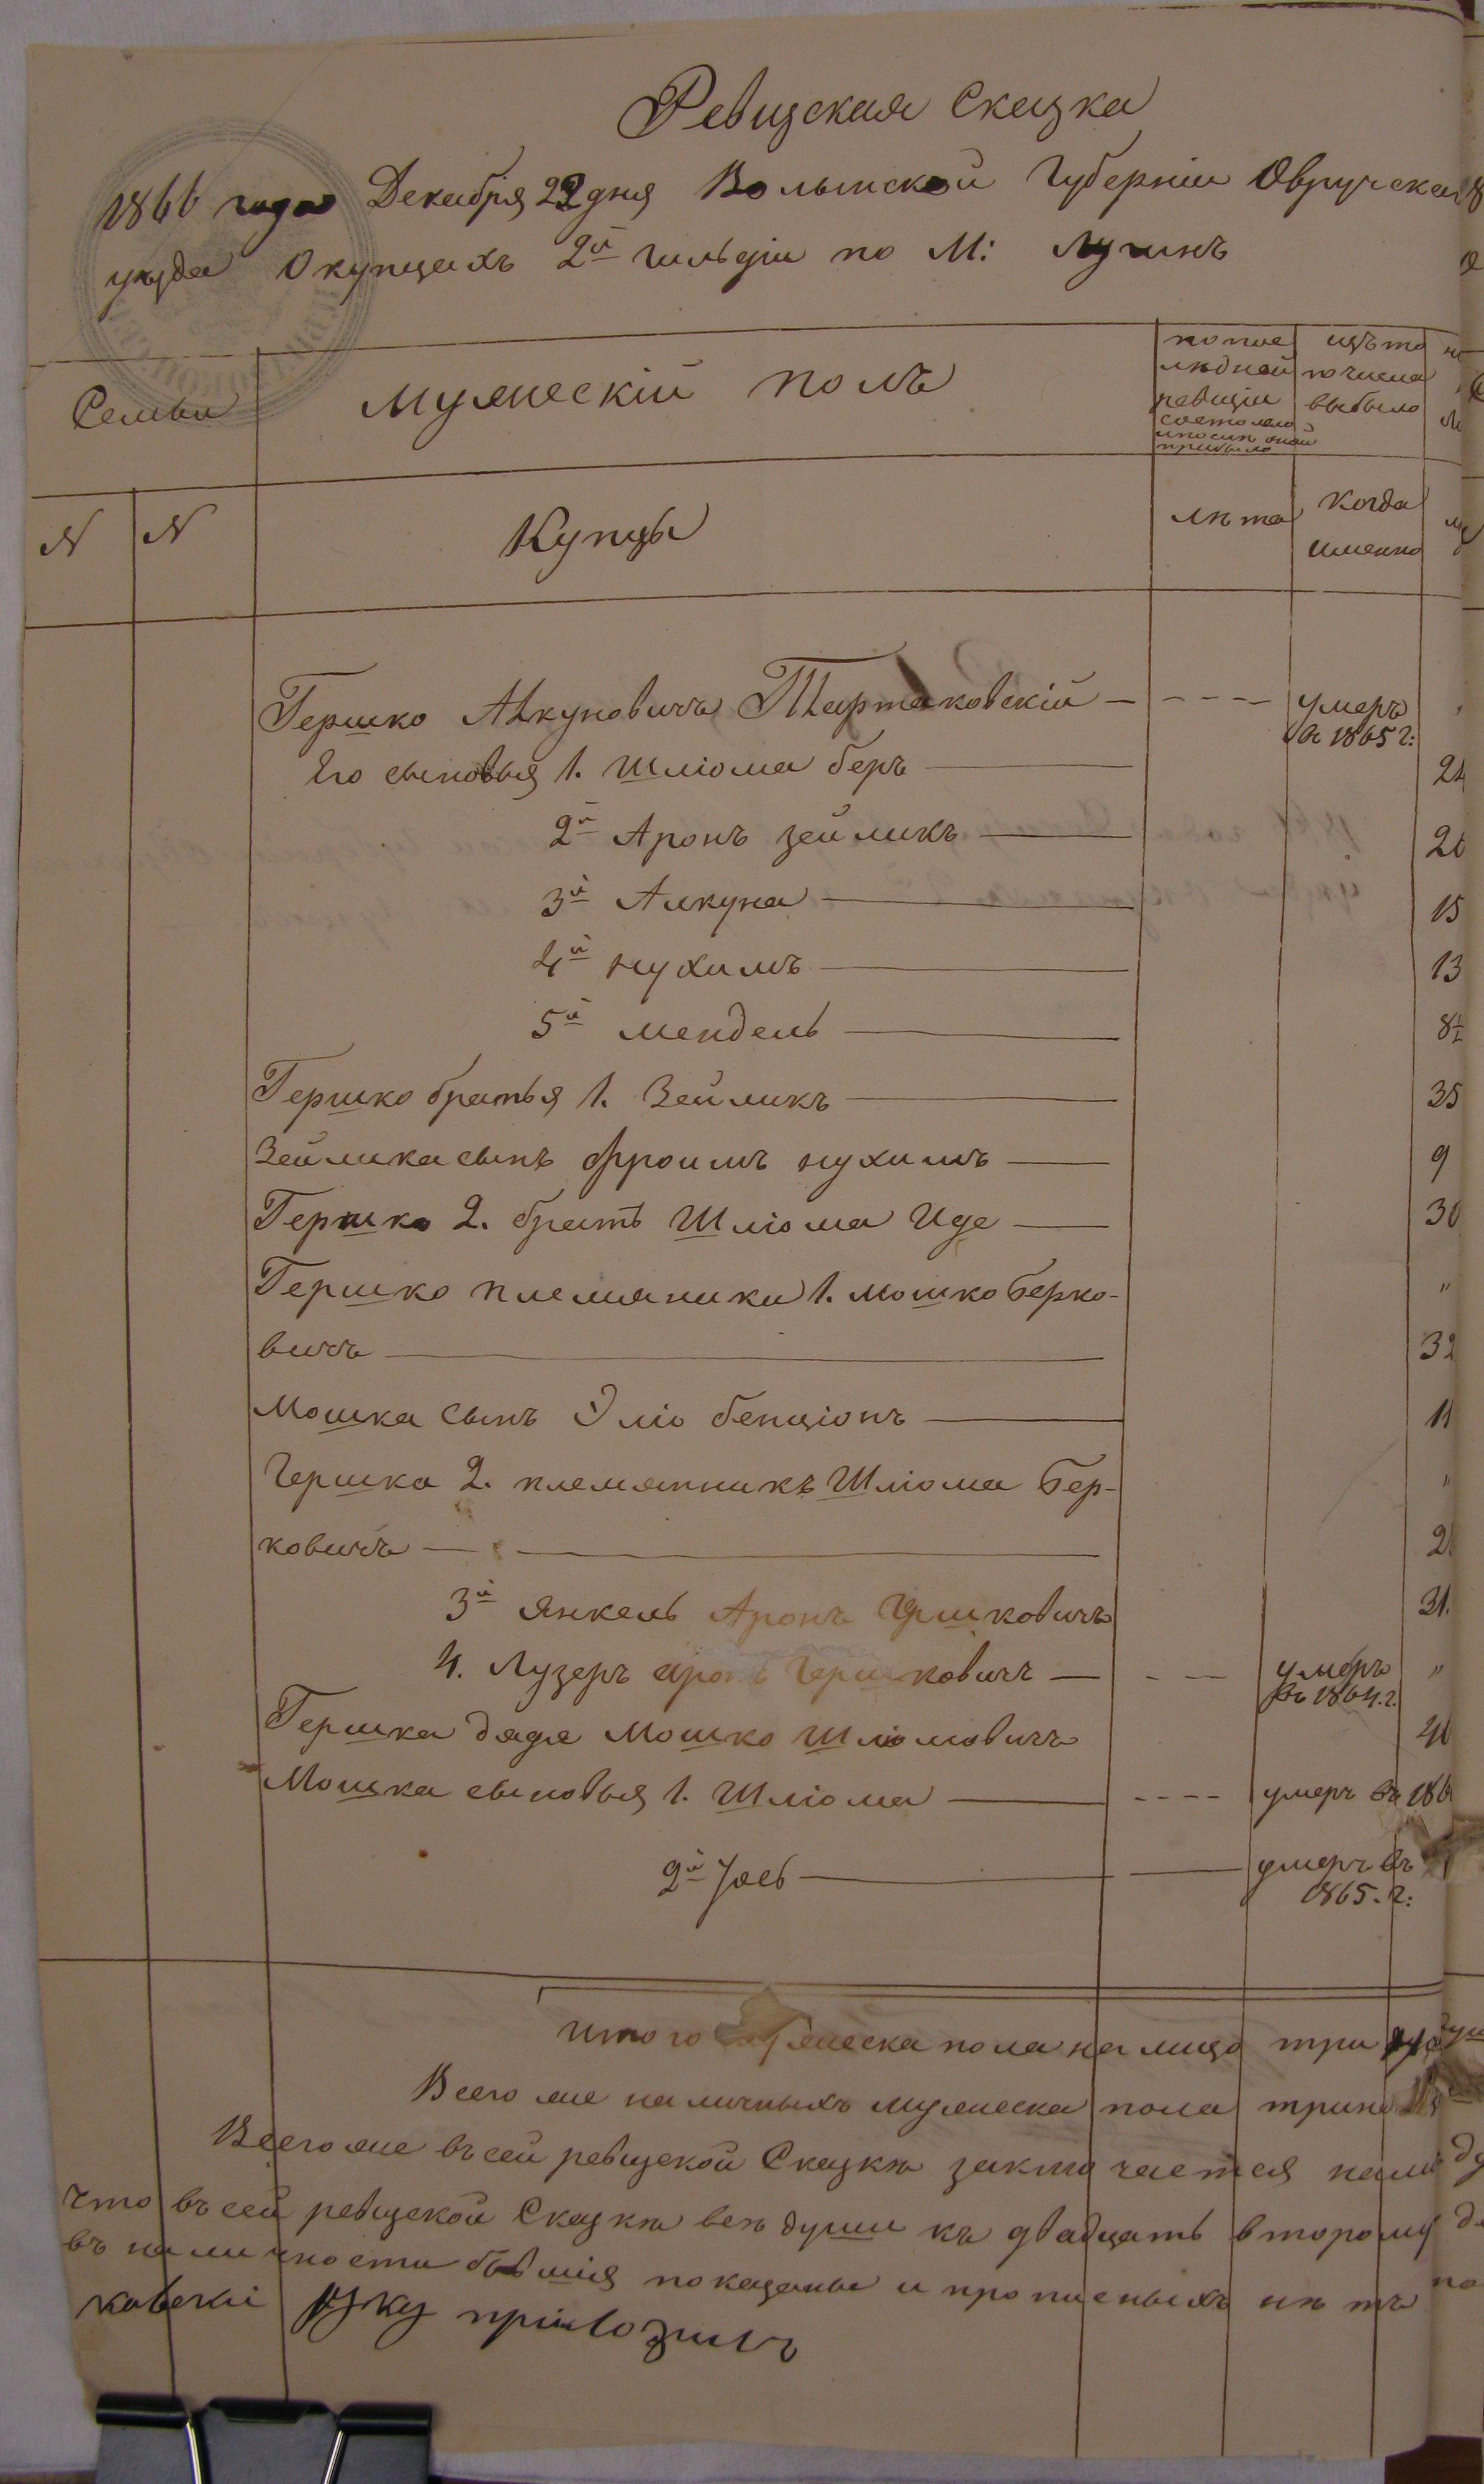 Ревизская Сказка
1866 года Декабря 22 дня Волынской Губерніи Овручска
уезда О купцахъ 2й гильдіи по М: Лугинъ
Семьи
Мужескій полъ
по пос
лѣдней
ревизіи
состояло
и посли оной
прибыло
изъ то
го числа
выбыло
N
N
Купцы
лѣта
Когда
именно
Гершко Анкуновичъ Тартаковскій
умеръ
въ 1865 г:
Его сыновья 1. Шліома беръ
24
2й Аронъ зейликъ
20
3й Анкуна
15
4й нухимъ
13
5й мендель
8½
Гершко братья 1. Зейликъ
35
Зейлика сынъ Фроимъ нухимъ
9
Гершко 2. братъ Шліома Иде
30
Гершко племяники 1. мошко Берко-
"
вичъ
32
Мошка сынъ Эліо бенціонъ
11
Гершка 2. племянникъ Шліома Бер-
"
ковичъ
2
3й Янкель Аронъ Гершковичъ
31.
4. Лузеръ аронъ Гершковичъ
умеръ
въ 1864.г.
"
Гершка дядя Мошко Шліомовичъ
40
Мошка сыновья 1. Шліома
умеръ въ 186
2й Іось
умеръ въ
1865. г:
итого мужеска пола на лицо три
Всего же наличныхъ мужеска пола трина
Всего же въ сей ревизской Сказкѣ заключается нали
Что въ сей ревизской Сказкѣ всѣ души къ двадцать второму
въ наличности бывшія показаны и прописныхъ нѣтъ
ковскі руку приложилъ